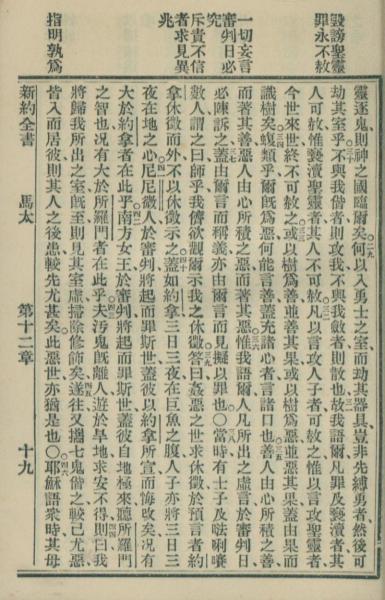 毀謗聖靈
罪永不赦
一切妄言
審判日必
究
斥責不信
者求見異
兆
指明孰爲
靈逐鬼則神之國臨爾矣何以入勇士之室而劫其器具豈非先縛勇者然後可
劫其室乎不與我偕者則攻我不與我斂者則散也故我語爾凡罪及褻瀆者其
人可赦惟褻瀆聖靈者其人不可赦凡以言攻人子者可赦之惟以言攻聖靈者
今世來世終不可赦之或以樹爲善並善其果或以樹爲惡並惡其果蓋由果而
識樹矣蝮類乎爾旣爲惡何能言善蓋充諸心者言諸口也善人由心所積之善
而著其善惡人由心所積之惡而著其惡惟我語爾人凡所出之虛言於審判日
必陳訴之蓋由爾言而釋義亦由爾言而見擬以罪也○當時有士子及
數人謂之曰師乎我儕欲觀爾示我之休徵答曰姦惡之世求休徵於預言者約
拿休徵而外不以休徵示之蓋如約拿三日三夜在巨魚之腹人子亦將三日三
夜在地之心尼尼微人於審判將起而罪斯世蓋彼以約拿所宣而悔改矣况有
大於約拿者在此乎南方女王於審判將起而罪斯世蓋彼自地極來聽所羅門
之智也况有大於所羅門者在此乎夫汚鬼旣離人遊於旱地求安不得則曰我
將歸我所出之室旣至則見其室虛掃除修飾矣遂往又攜七鬼偕之較己尤惡
皆入而居彼則其人之後患較先尤甚矣此惡世亦猶是也○耶穌語衆時其母
新約全書 馬太 第十二章 十九